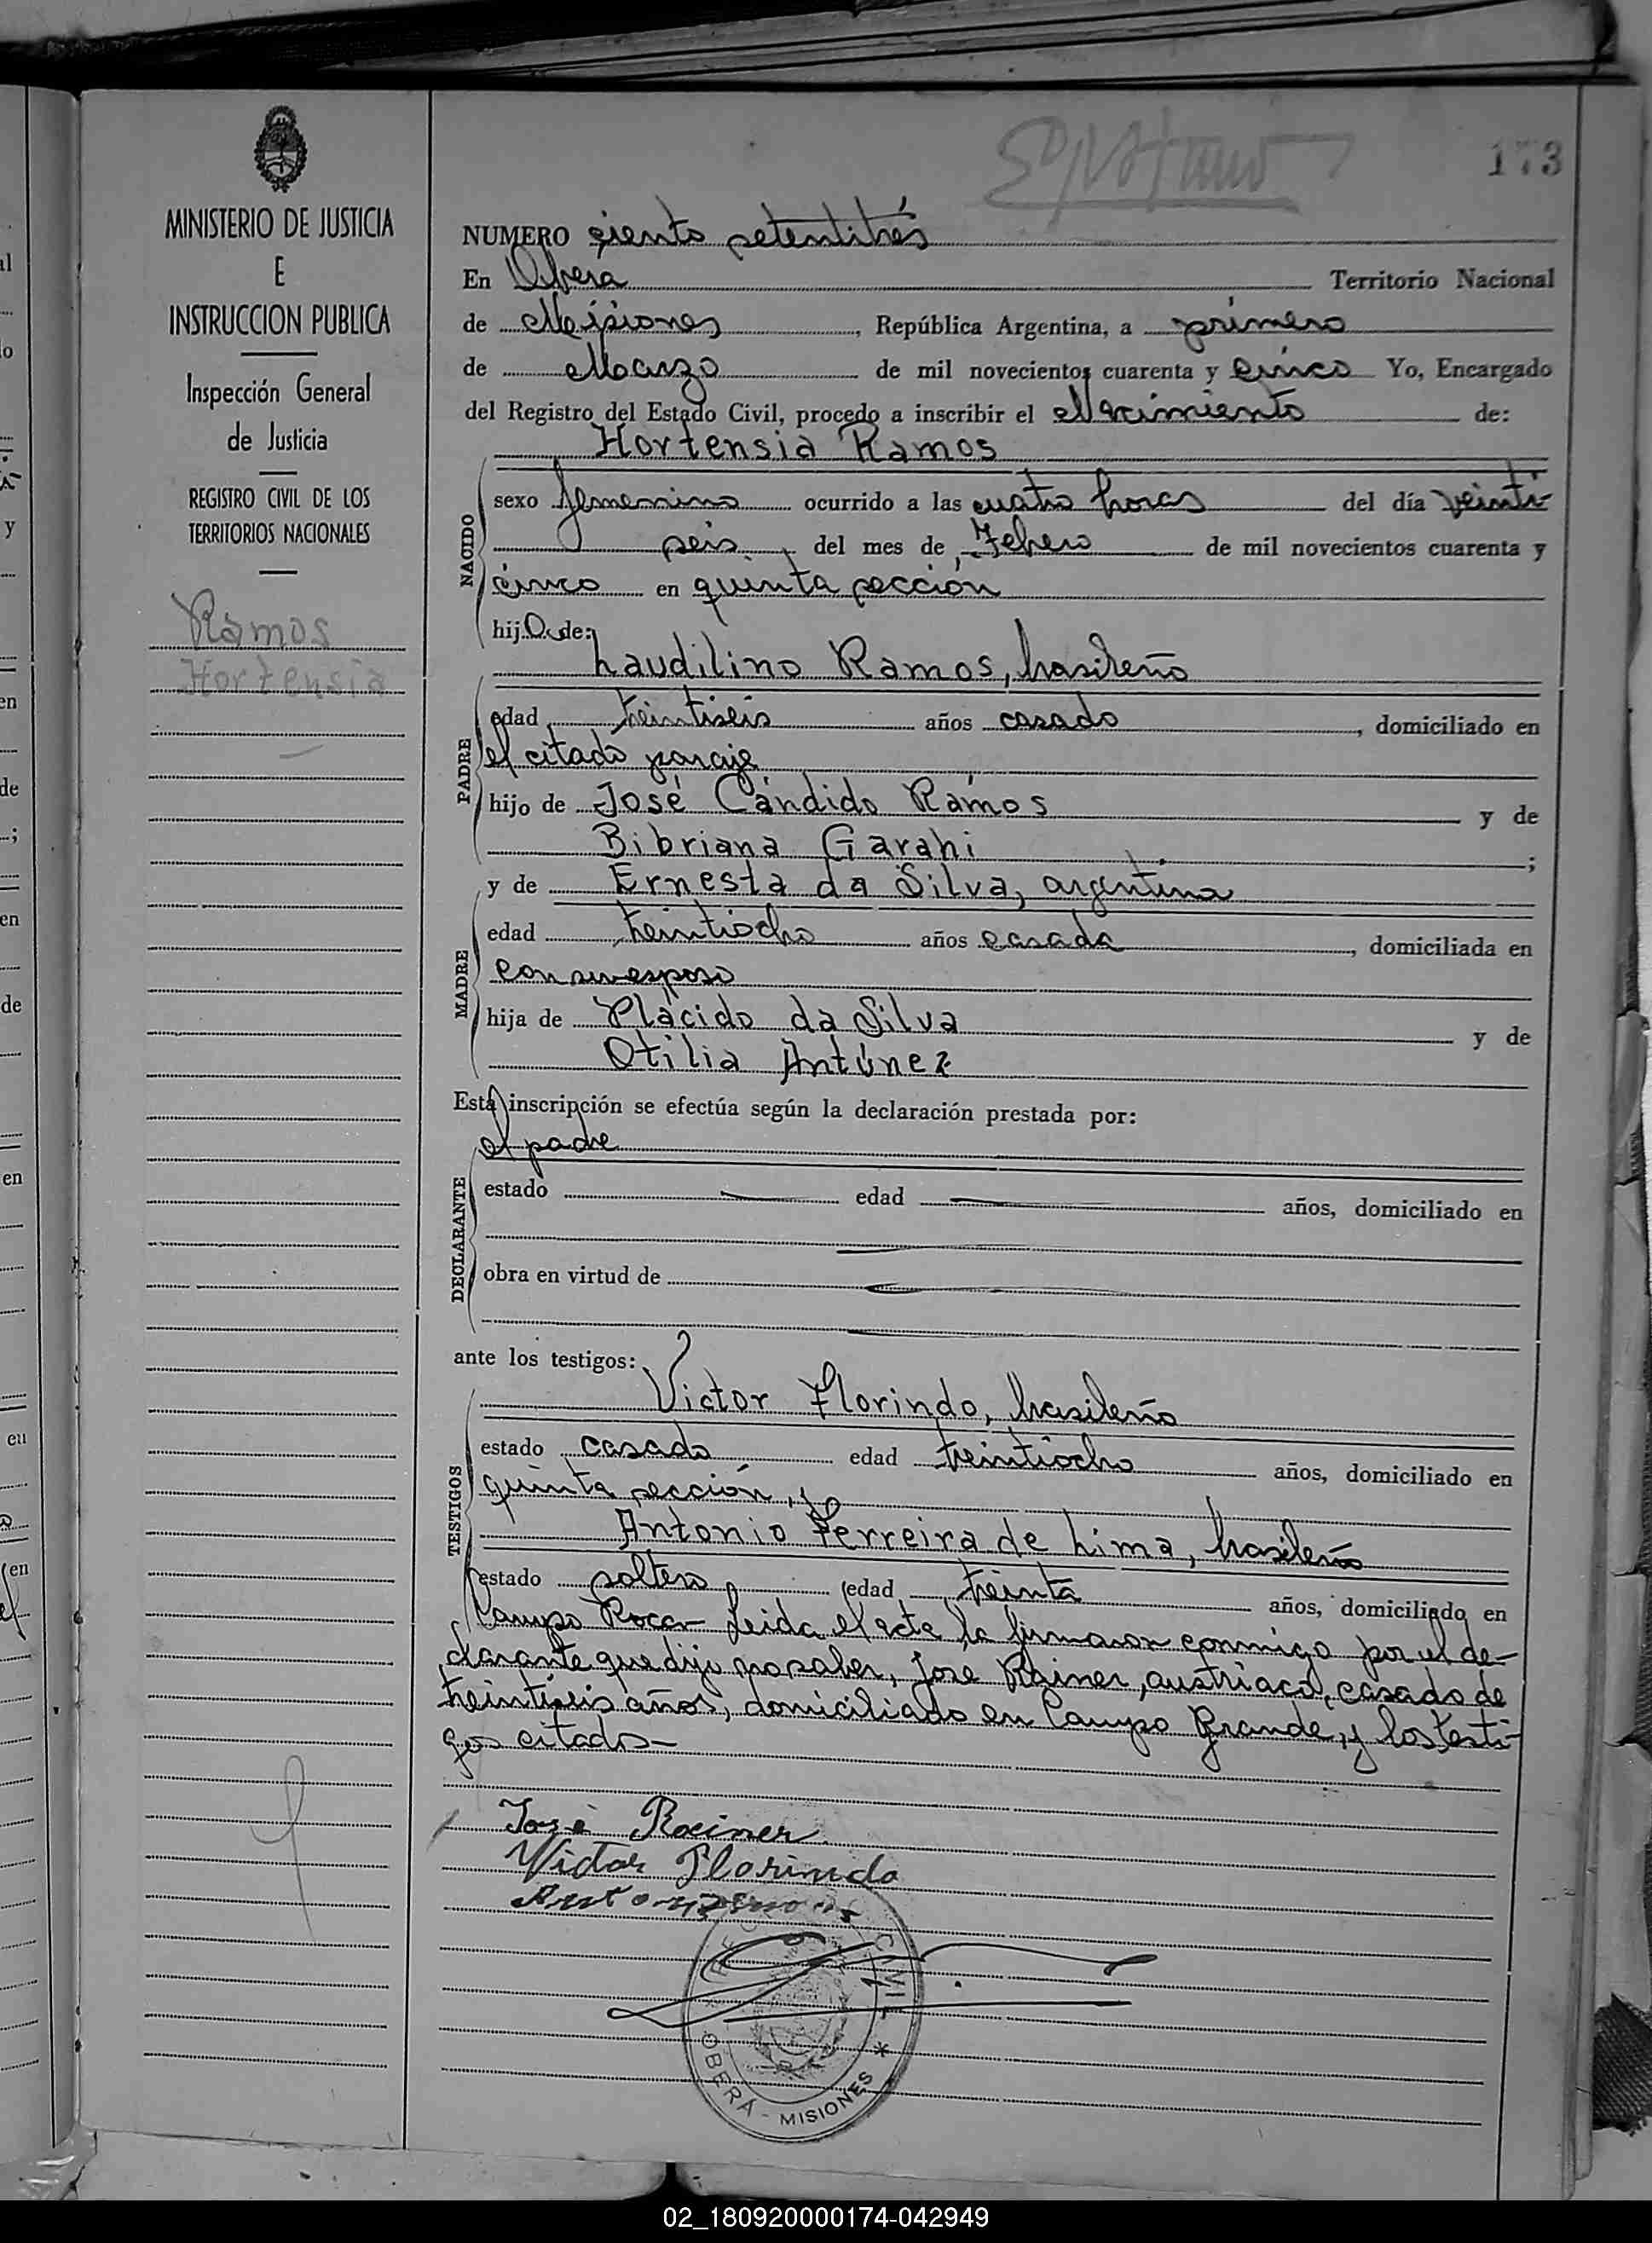 173
MINISTERIO DE JUSTICIA
E
INSTRUCCION PUBLICA
Inspección General
de Justicia
REGISTRO CIVIL DE LOS
TERRITORIOS NACIONALES
Ramos
Hortensia
NUMERO ciento setentitrés
En Oberá Territorio Nacional
de Misiones, República Argentina, a primero
de Marzo de mil novecientos cuarenta y cinco Yo, Encargado
del Registro del Estado Civil, procedo a inscribir el Nacimiento de:
Hortensia Ramos
NACIDO
sexo femenino ocurrido a las cuatro horas del día veinti-
seis, del mes de Febrero de mil novecientos cuarenta y
cinco en quinta sección
hija de:
Laudilino Ramos, brasileño
PADRE
edad treintiseis años casado, domiciliado en
el citado paraje
hijo de José Cándido Ramos y de
Bibriana Garahi;
y de Ernesta da Silva, argentina
MADRE
edad treintiocho años casada, domiciliada en
con su esposo
hija de Plácido da Silva y de
Otilia Antúnez
Esta inscripción se efectúa según la declaración prestada por:
el padre
DECLARANTE
estado edad años, domiciliado en
obra en virtud de
ante los testigos:
Victor Florindo, brasileño
TESTIGOS
estado casado edad treintiocho años, domiciliado en
quinta sección, y
Antonio Ferreira de Lima, brasileño
estado soltero edad treinta años, domiciliado en
Campo Roca- Leida el acta la firmaron conmigo por el de-
clarante que dijo no saber, José Rainer, austriaco, casado de
treintiseis años, domiciliado en Campo Grande, y los testi-
gos citados-
José Rainer
Victor Florindo
CIVIL
OBERÁ - MISIONES *
02_180920000174-042949